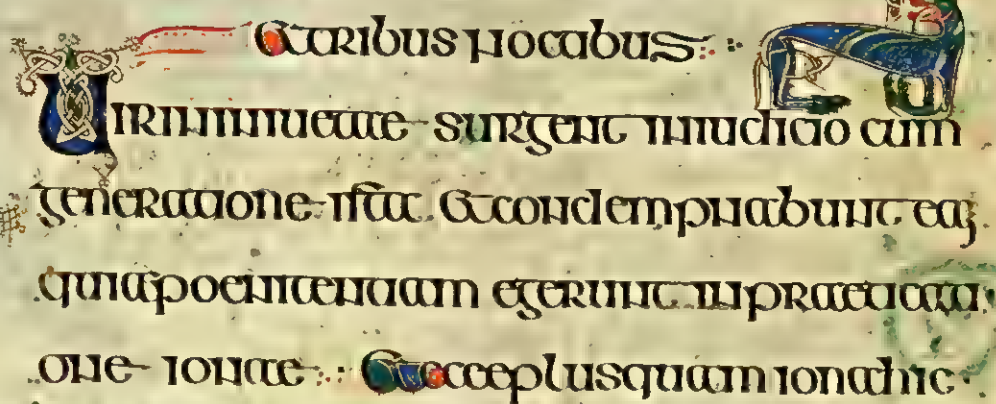 Et tribus noctabus
Viri nineuetae surgent in iudicio cum
generatione ista. Et condempnabunt eaꝫ
quia poenitentiam egerunt in praeticati
one ionae Et ecce plusquam iona hic